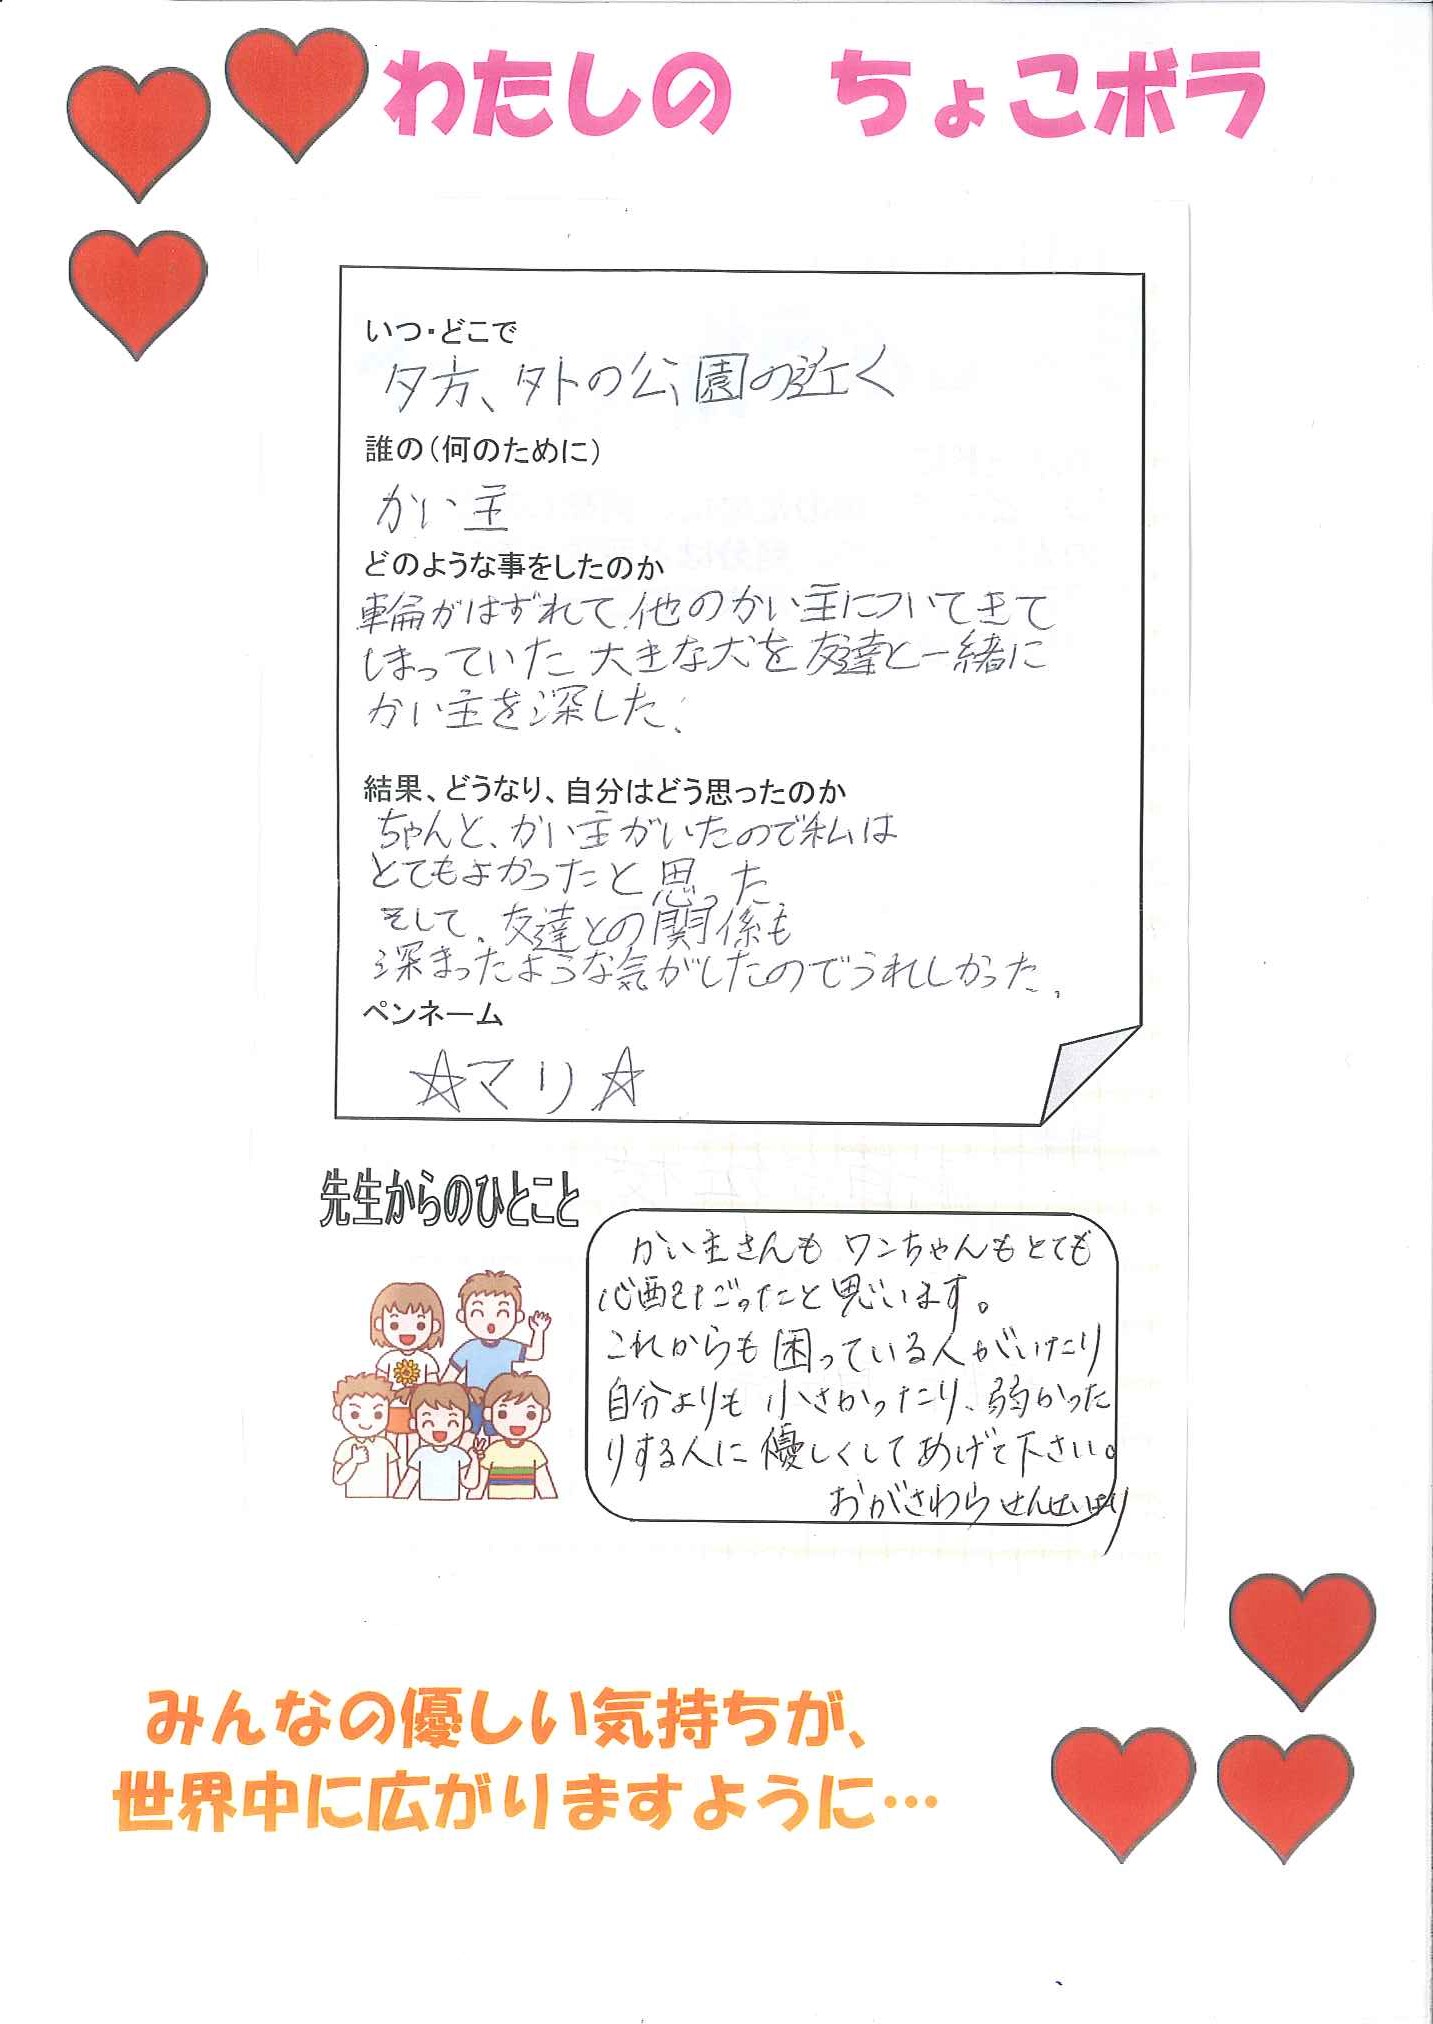 わたしの ちょこボラ
いつ・どこで
夕方、外の公園の近く
誰の(何のために)
かい主
どのような事をしたのか
輪がはずれて、他のかい主についてきて
しまっていた大きな犬を友達と一緒に
かい主を深した、
結果、どうなり、自分はどう思ったのか
ちゃんと、かい主がいたので私は
とてもよかったと思った
そして、友達との関係も
深まったような気がしたのでうれしかった、
ペンネーム
☆マリ☆
先生からのひとこと
かい主さんも ワンちゃんもとても
心配だったと思います。
これからも困っている人がいたり
自分よりも小さかったり、弱かった
りする人に優しくしてあげて下さい。
おがさわら せんせいより
みんなの優しい気持ちが、
世界中に広がりますように…